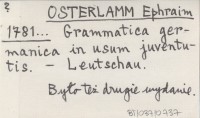 ?
OSTERLAMM Ephraim
1781... Grammatica ger-
manica in usum juventu-
tis. – Leutschau.
Było też drugie wydanie.